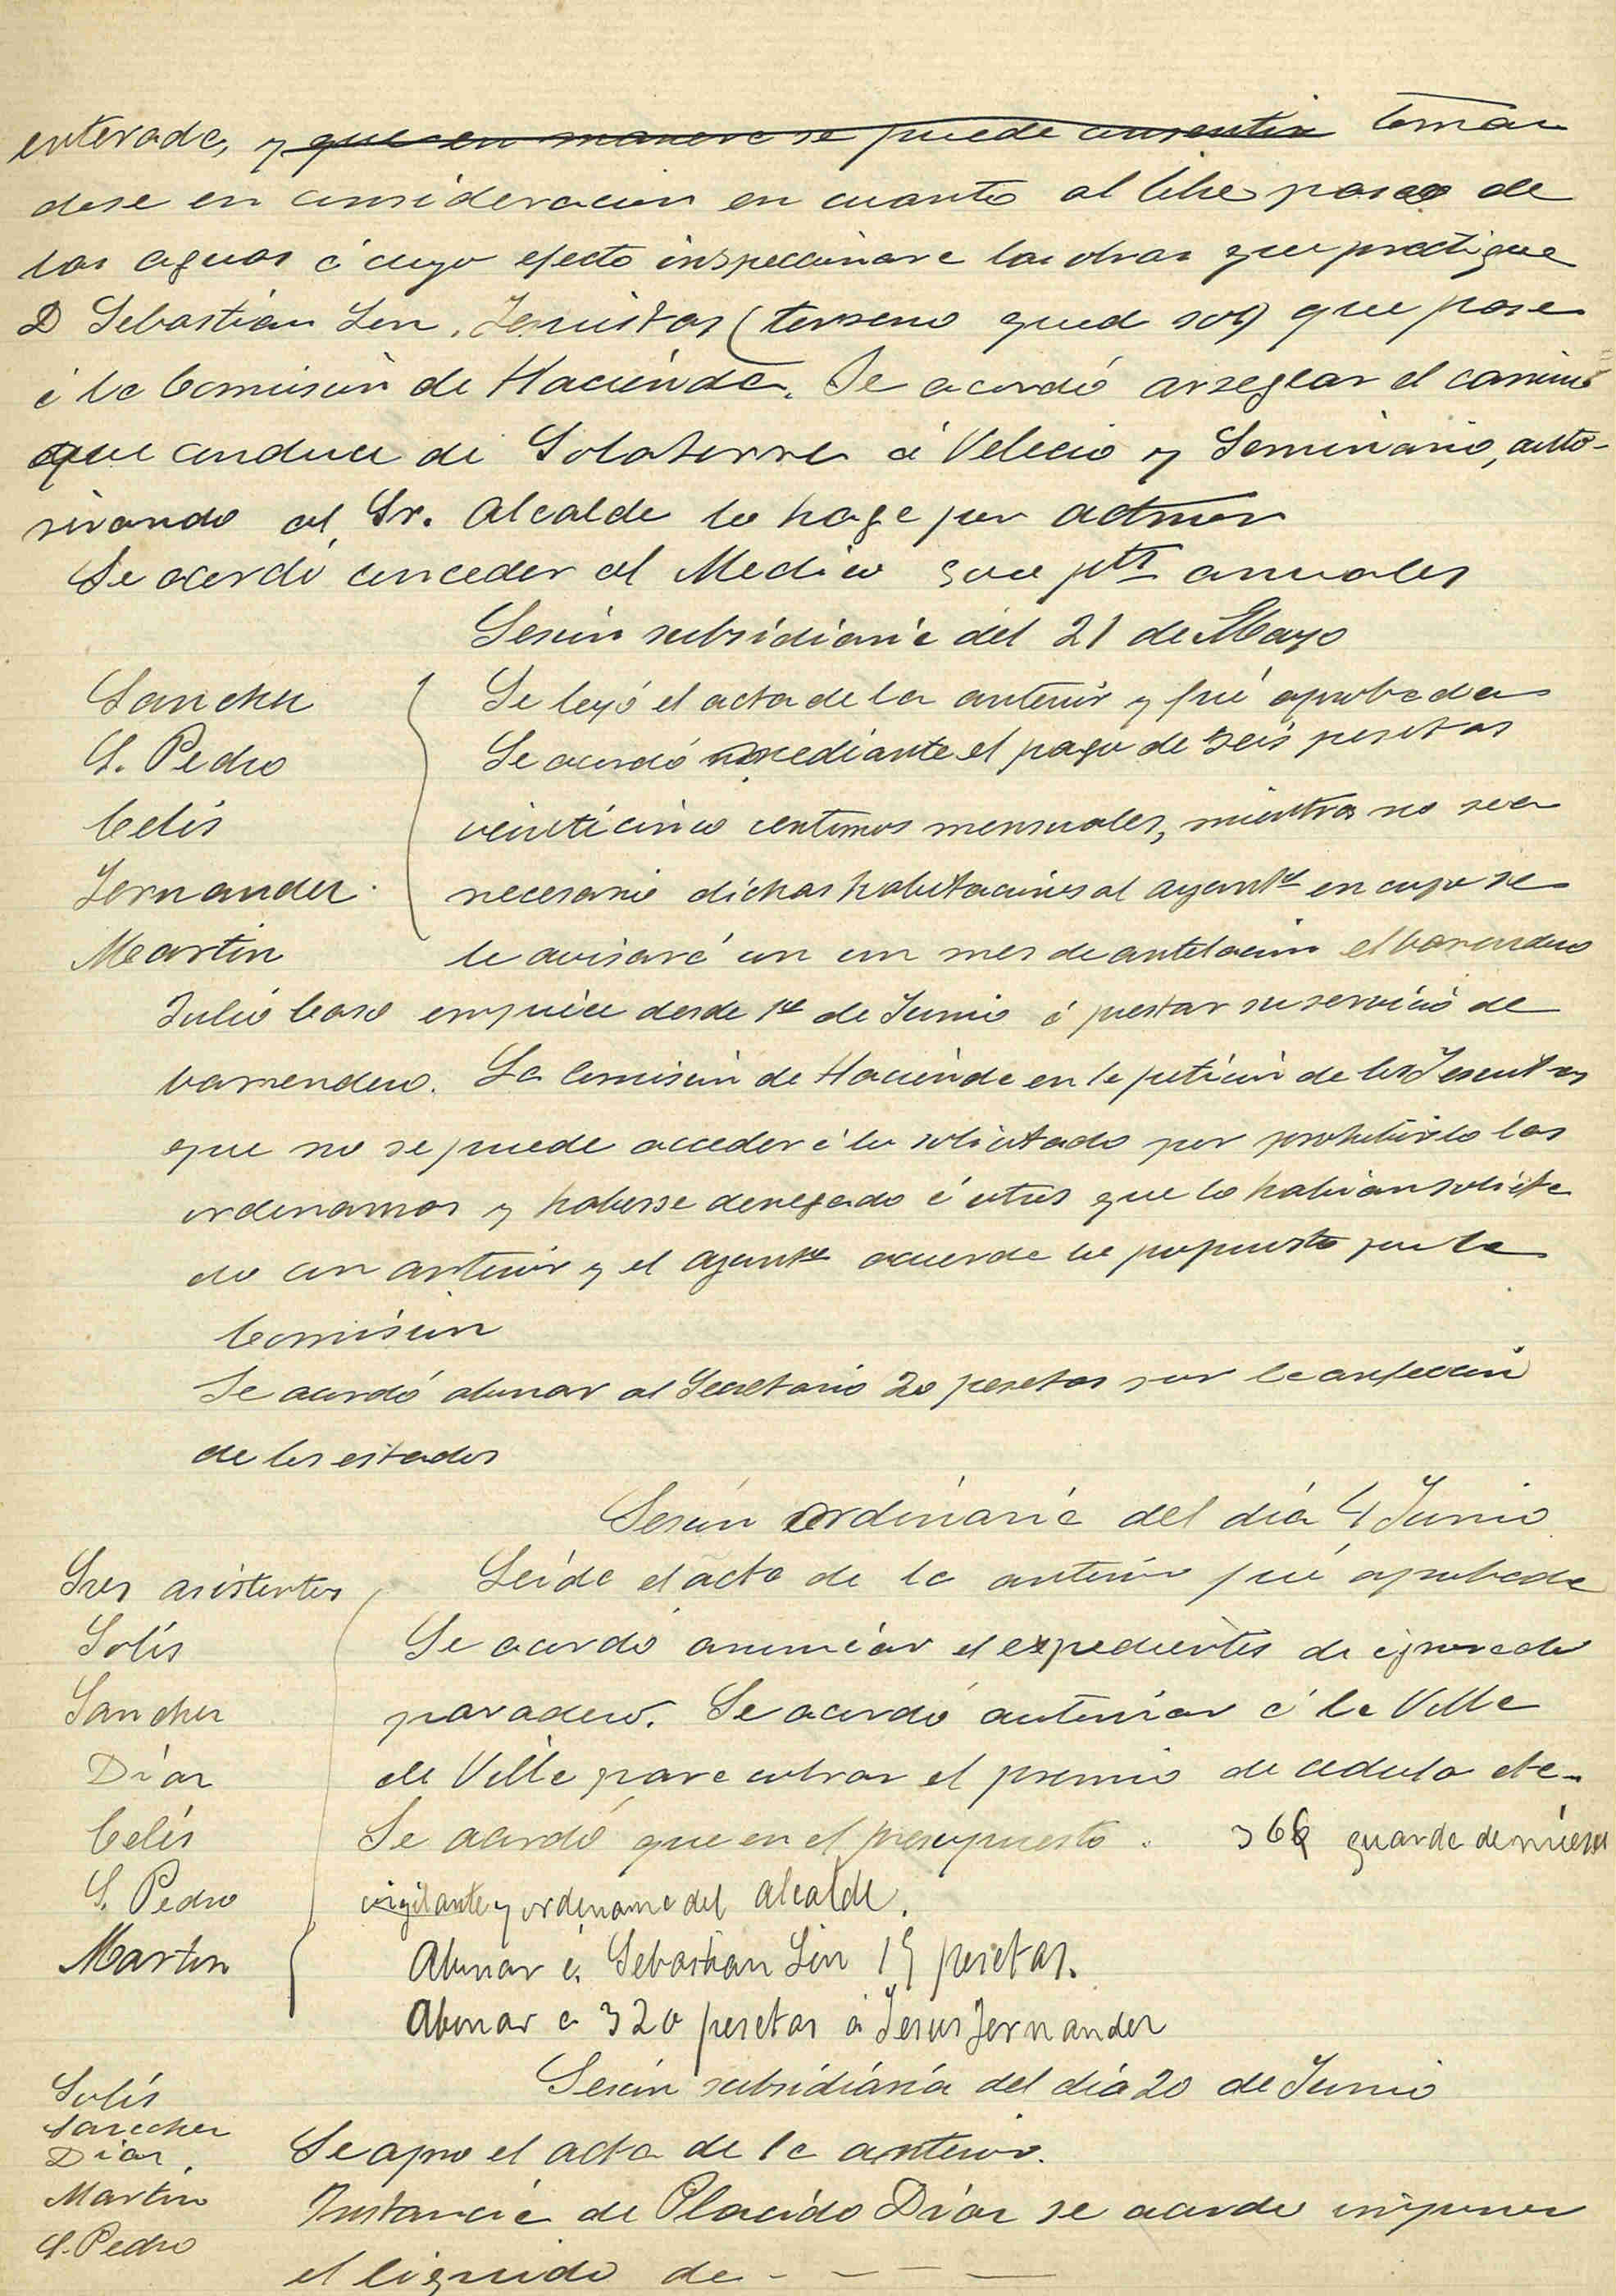 enterada, y que en manera se puede consentir toman
dose en consideracion en cuanto al libre paso de
las aguas á cuyo efecto inspeccionara las obras que practique
D Sebastian Lin. Jesuitas (terreno qued sob) que pase
á la Comision de Hacienda. Se acordó arreglar el camino
que conduce de Solatorre á Velecio y Seminario, auto-
rizando al Sr. Alcalde lo haga por admon
Se acordó conceder al Medico ptas anuales
Sesion subsidiaria del 21 de Mayo
Sanchez
S. Pedro
Celis
Fernandez
Martin
Se leyó el acta de la anterior y fué aprobada
Se acordó mediante el pago de seis pesetas
veinticinco centimos mensuales, mientras no sea
necesario dichas habitaciones al ayuntº en cuyo se
le avisará con un mes de antelacion el barrendero
Julio Caso empiece desde 1º de Junio á prestar su servicio de
barrendero. La Comision de Hacienda en la peticion de los Jesuitas
que no se puede acceder á lo solicitado por prohibirlo las
ordenanzas y haberse denegado á otros que lo habian solicita
do con anterior y el ayuntº acuerda lo propuesto por la
Comision
Se acordó abonar al Secretario 20 pesetas por la confeccion
de los estados
Sesion ordinaria del dia 4 Junio
Sres asistentes
Solís
Sanchez
Díaz
Celis
S. Pedro
Martin
Leida el acta de la anterior fué aprobada
Se acordó anunciar el expedientes de ignorado
paradero. Se acordó autorizar á la Villa
de Villa para cobrar el premio de cedula etc.
Se acordó que en el presupuesto. 366 guarda de mieses
vigilante y ordenanza del alcalde.
Abonar á Sebastian Lin 15 pesetas.
Abonar a 320 pesetas á Jesus Fernandez
Sesion subsidiaria del dia 20 de Junio
Solís
Sanchez
Diaz.
Martin
S. Pedro
Se apro el acta de la anterior.
Instancia de Placido Díaz se acorda imponer
el liquido de - - - -